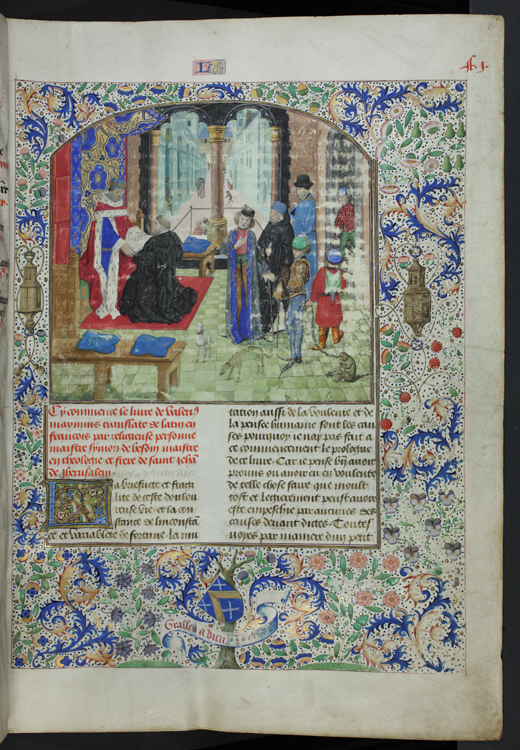 Cy commence le liure de Valeri9
maximus translate de latin en
francois par religieuse personne
maistre symon de hesdin maistre
en theologie et frere de saint Jehã
de Jherusalem
La briefuete et fragi
lite de ceste doulou
reuse vie et la con
stance de linconstã
ce et variablete de fortune la mu
tation aussi de la voulente et de
la pensee humaine sont les cau
ses pourquoy ie nay pas fait a
ce commencement le prologue
de ce liure Car ie pense
prems ou auoir en en voulente
de telle chose faire que moult
tost et legierement peust auoir
este empeschie par aucunes des
causes deuant dictes Toutes
voyes par maniere dun petit
Graces a dieu